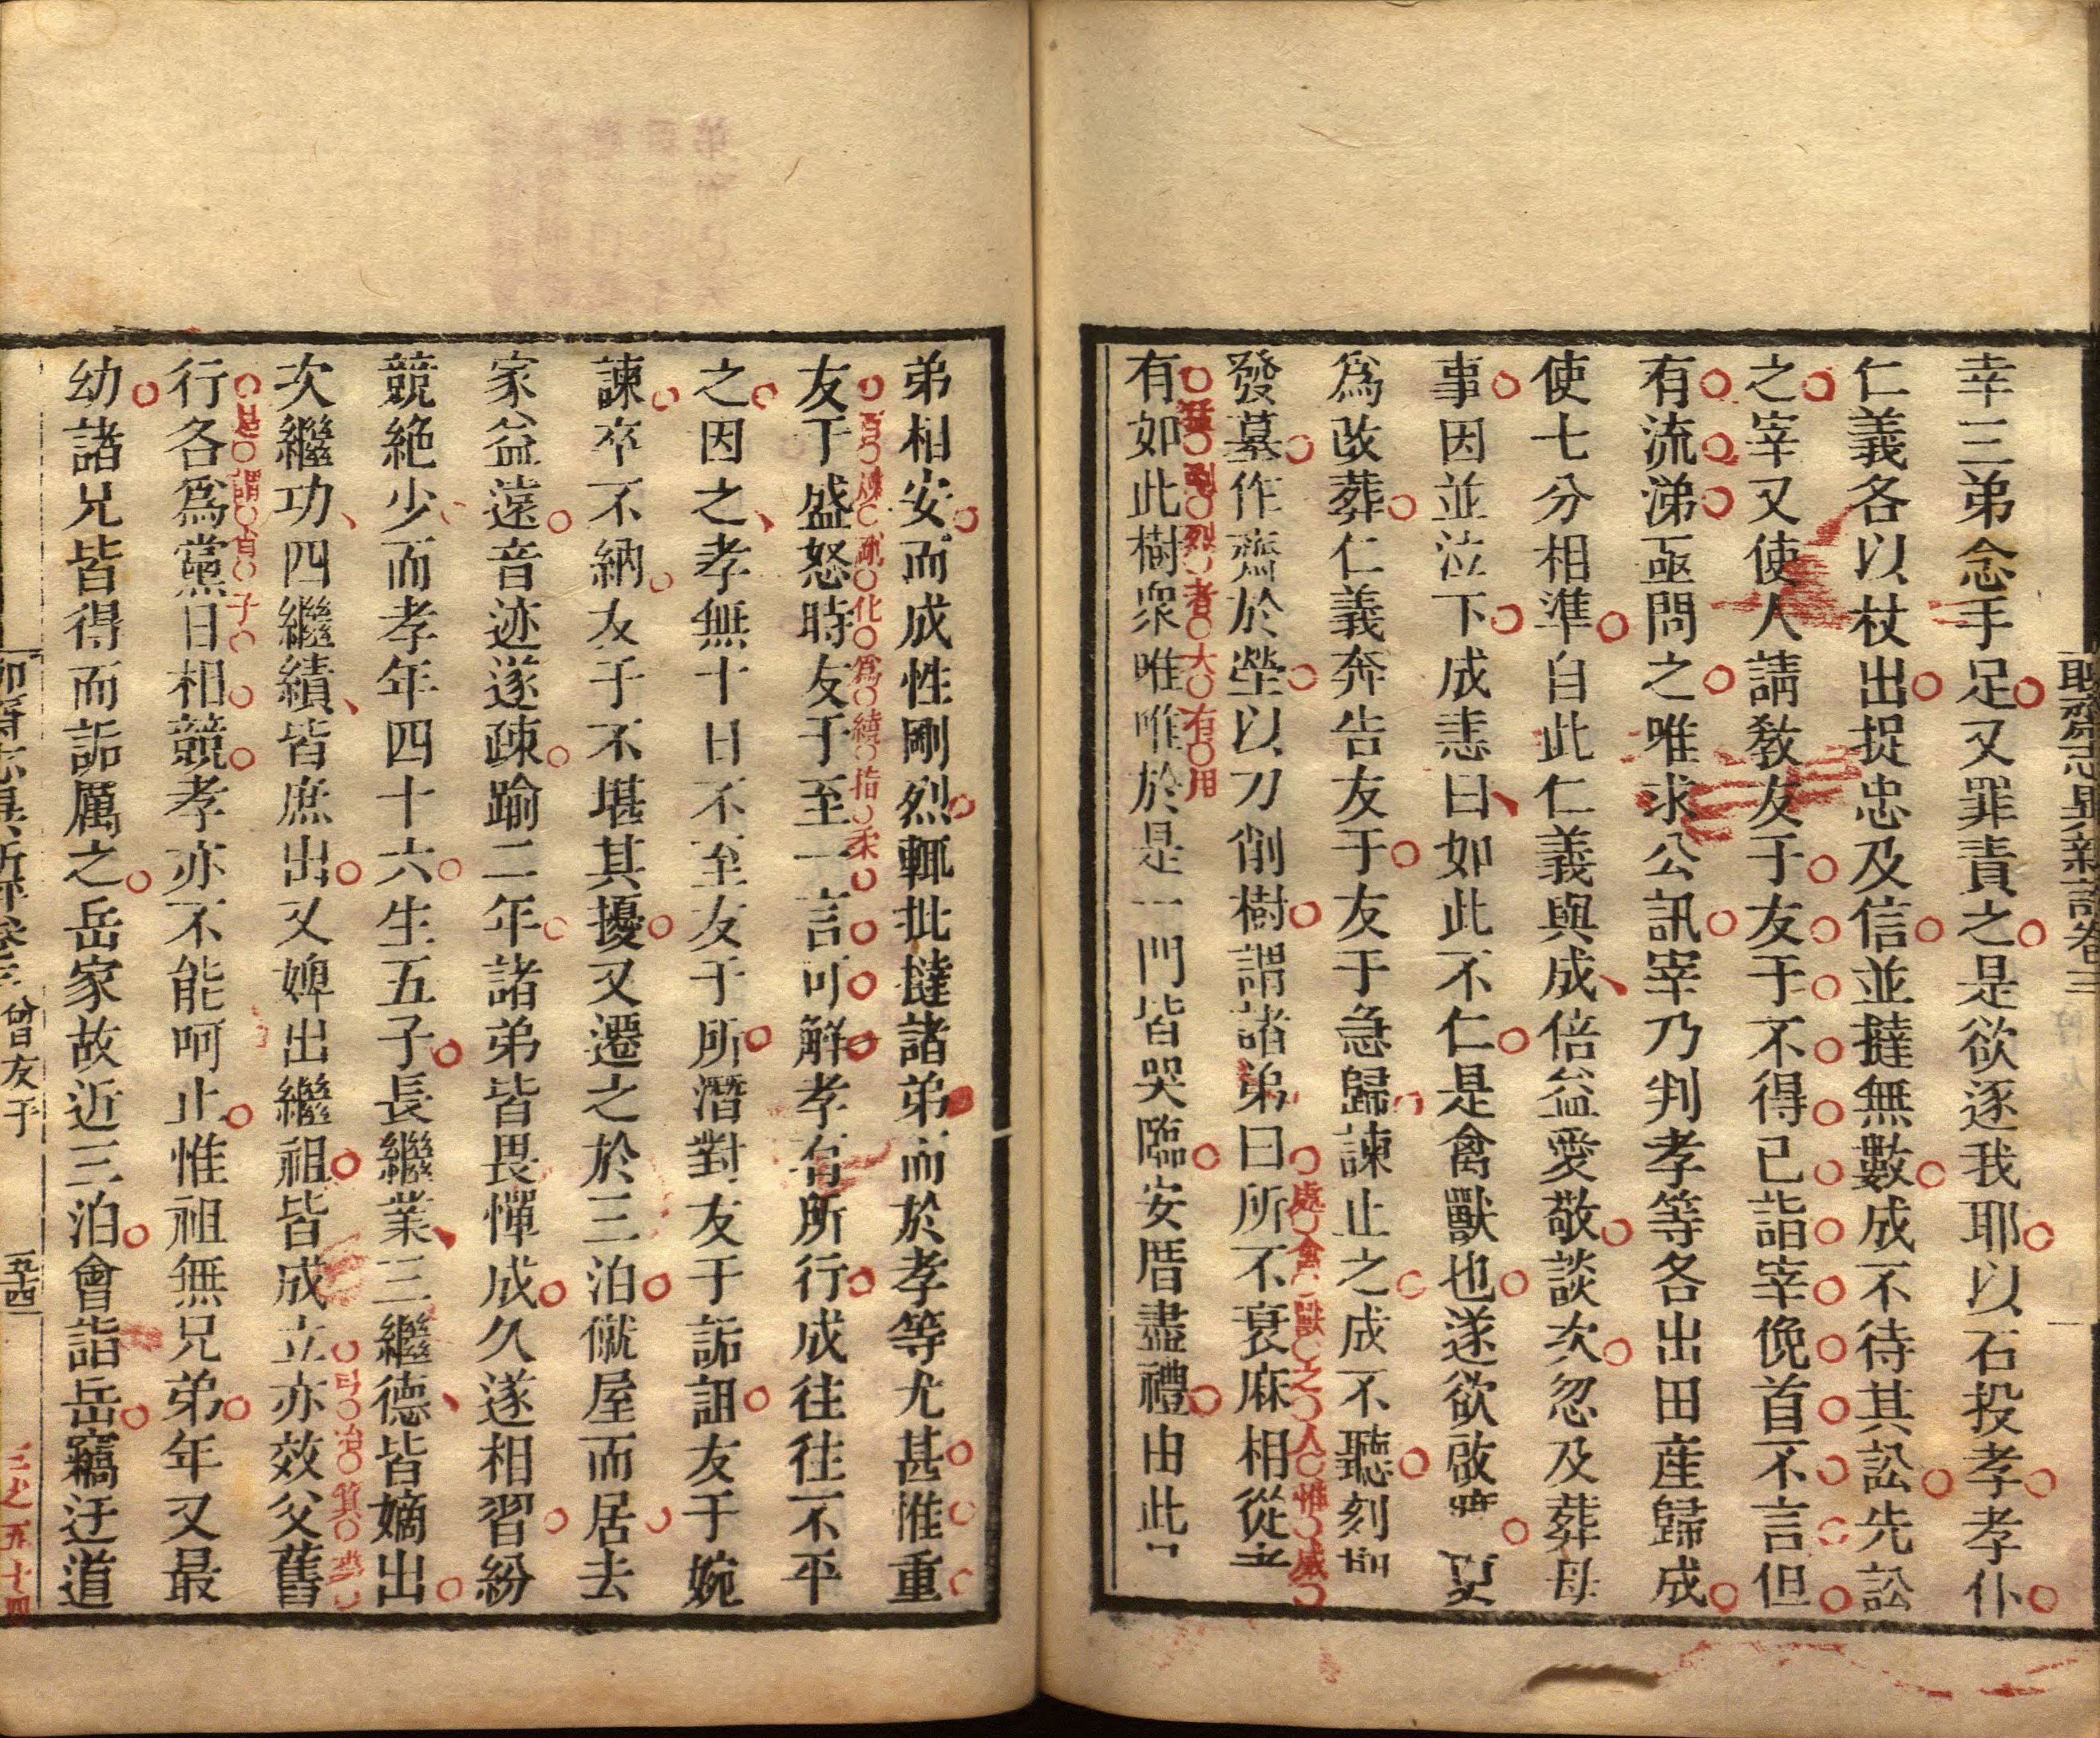 聊齋志異新評卷三
幸三弟念手足又罪責之是欲逐我耶以石投孝孝仆
仁義各以杖出捉忠及信並撻無數成不待其訟先訟
之宰又使人請教友于友于不得已詣宰俛首不言但
有流涕亟問之唯求公訊宰乃判孝等各出田產歸成
使七分相準自此仁義與成倍益愛敬談次忽及葬母
事因並泣下成恚曰如此不仁是禽獸也遂欲啟
為改葬仁義奔告友于友于急歸諫止之成不聽刻
發墓作齋於塋以刀削樹謂諸弟曰所不衰麻相從
處禽獸之人惟威
猛剛烈者大有用
有如此樹衆唯唯於是一門皆哭臨安厝盡禮由此
弟相安而成性剛烈輒批撻諸弟而於孝等尤甚惟重
友于盛怒時友于至一言可解孝有所行成往往不平
之因之孝無十日不至友于所潛對友于詬詛友于婉
諫卒不納友于不堪其擾又遷之於三泊僦屋而居去
家益遠音迹遂疎踰二年諸弟皆畏憚成久遂相習紛
競絶少而孝年四十六生五子長繼業三繼德皆嫡出
次繼功四繼績皆庶出又婢出繼祖皆成立亦效父舊
行各為黨日相競孝亦不能呵止惟祖無兄弟年又最
是謂肖子
幼諸兄皆得而詬厲之岳家故近三泊會詣岳竊迂道
曾友于
五十四
三之五十四